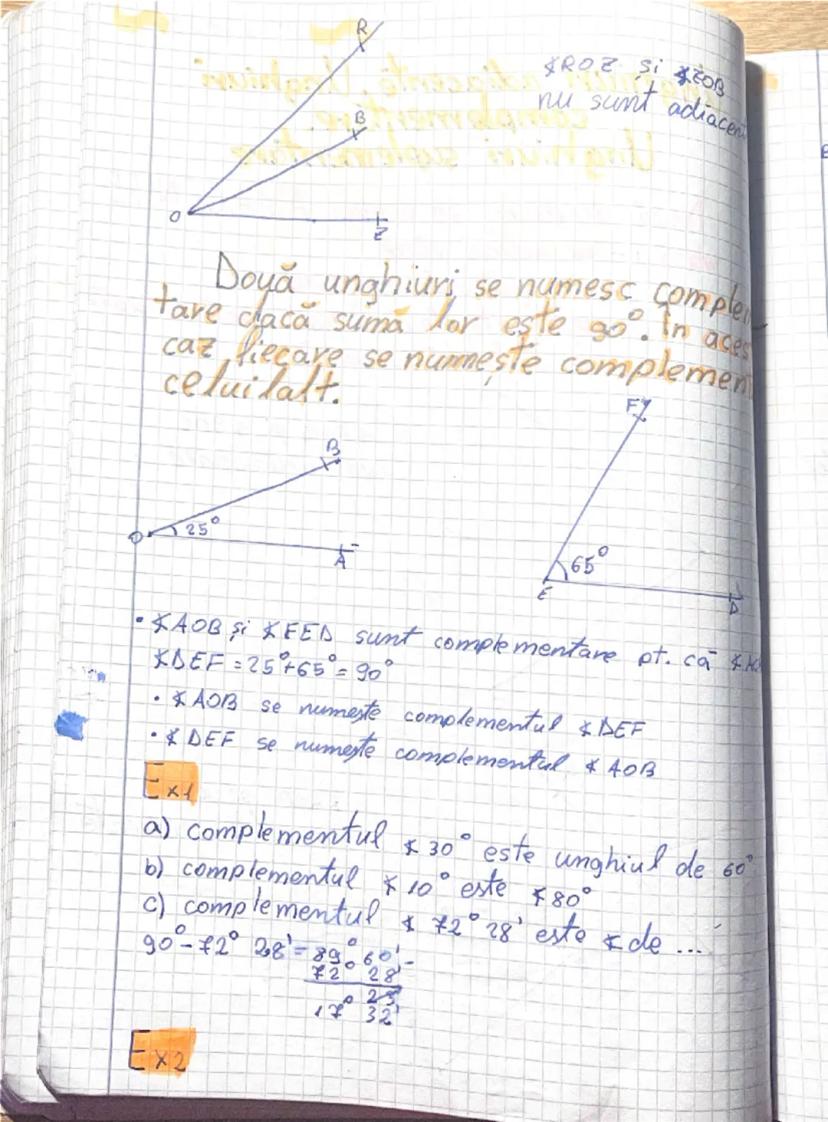 R
∢ROZ și ∢ZOB
nu sunt
B
O
Z
Două unghiuri se numesc
tare dacă sumă lor este 90°. În
caz fiecare se numește
celuilalt.
F
B
O 25°
A
65°
E
D
• ∢AOB și ∢FED sunt complementare pt. că
∢DEF = 25°+65° = 90°
• ∢AOB se numește complementul ∢DEF
• ∢DEF se numește complementul ∢AOB
Ex1
a) complementul ∢30° este unghiul de 60°
b) complementul ∢10° este ∢80°
c) complementul ∢ 72° 28' este ∢ de ...
90°-72° 28' = 89° 60' -
72° 28'
17° 32'
Ex2